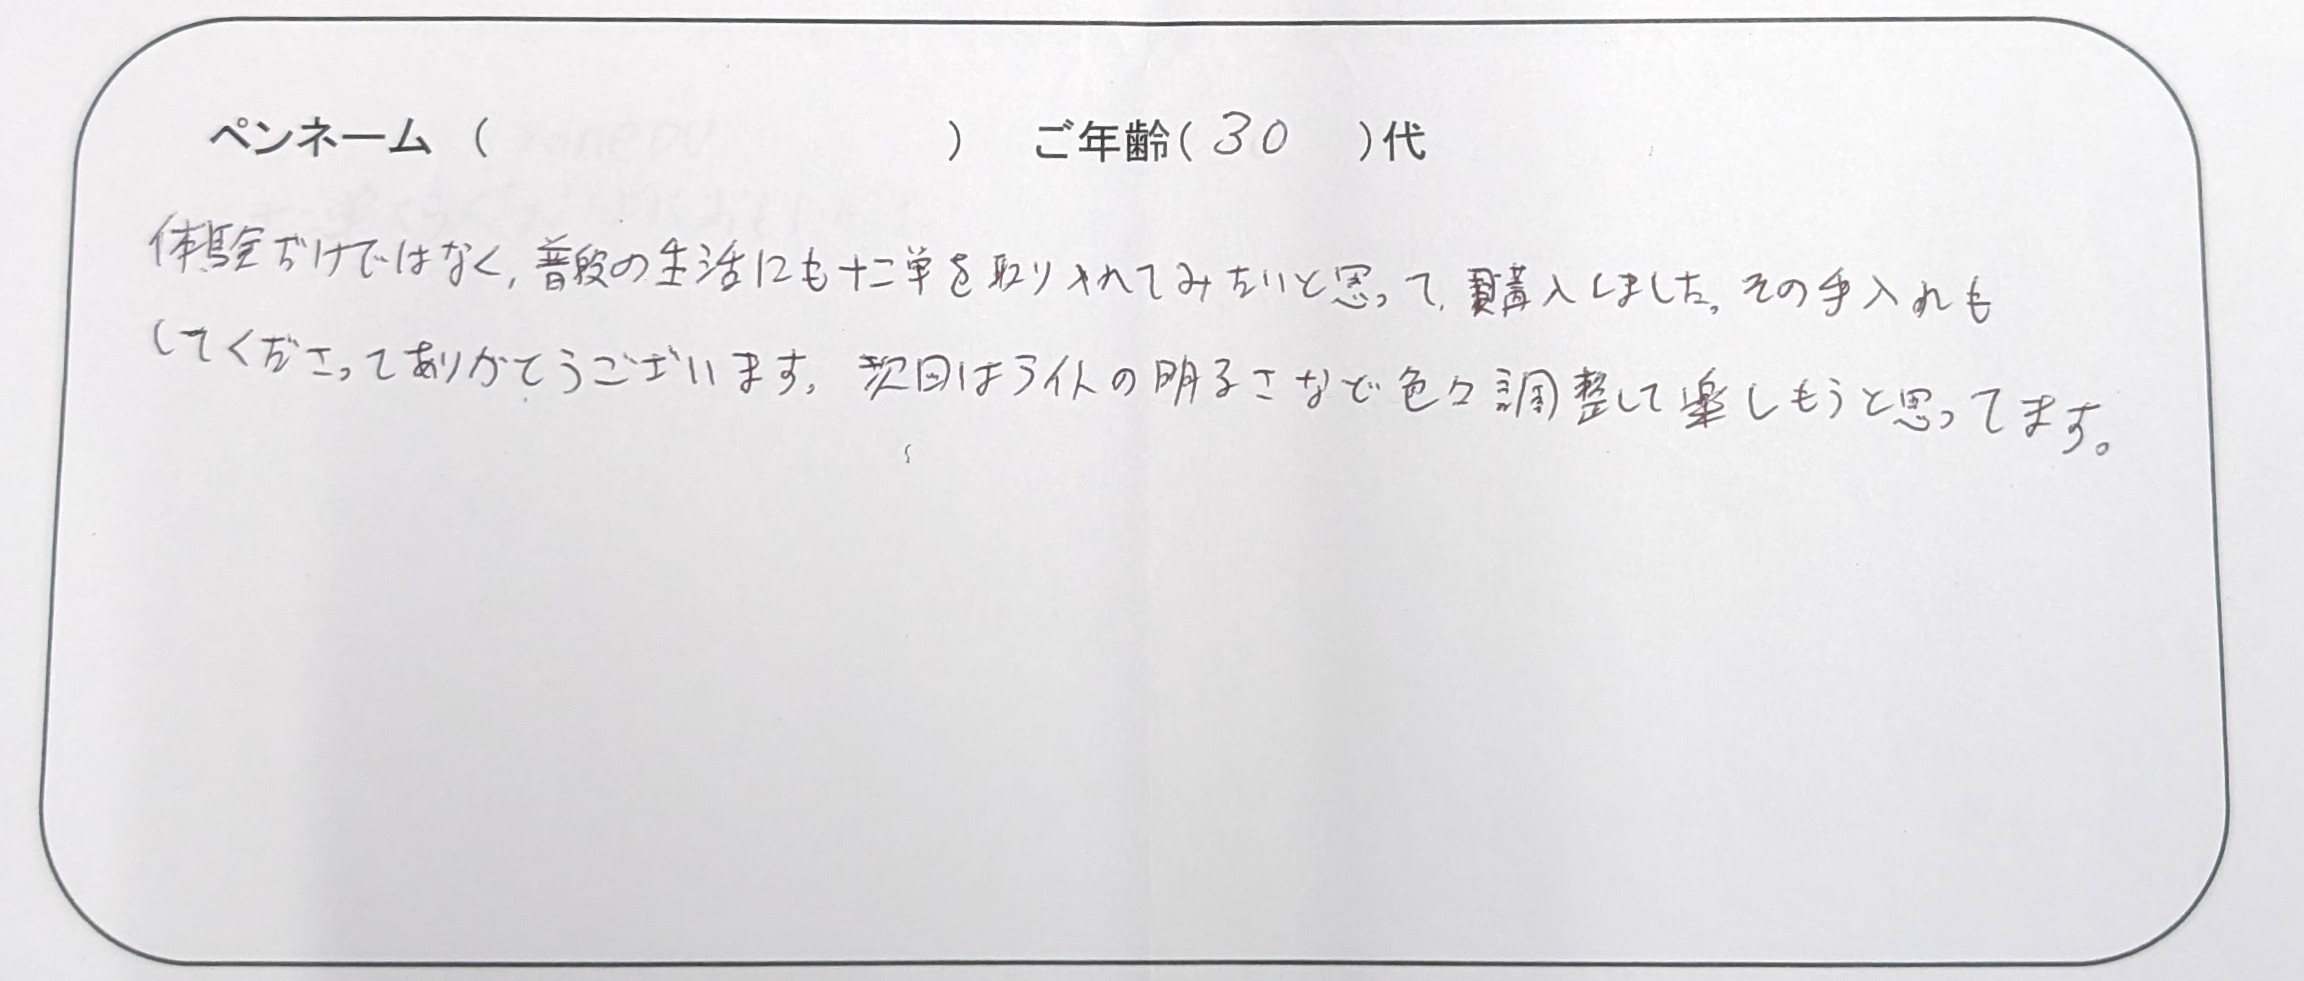 ペンネーム（　　　　　　）　ご年齢（30　）代
体験だけではなく、普段の生活にも十二単を取り入れてみたいと思って、購入しました。その手入れも
してくださってありがとうございます。次回はライトの明るさなど色々調整して楽しもうと思ってます。